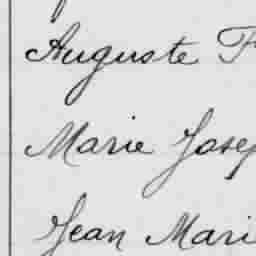 Auguste F
Marie Josep
Jean Mari